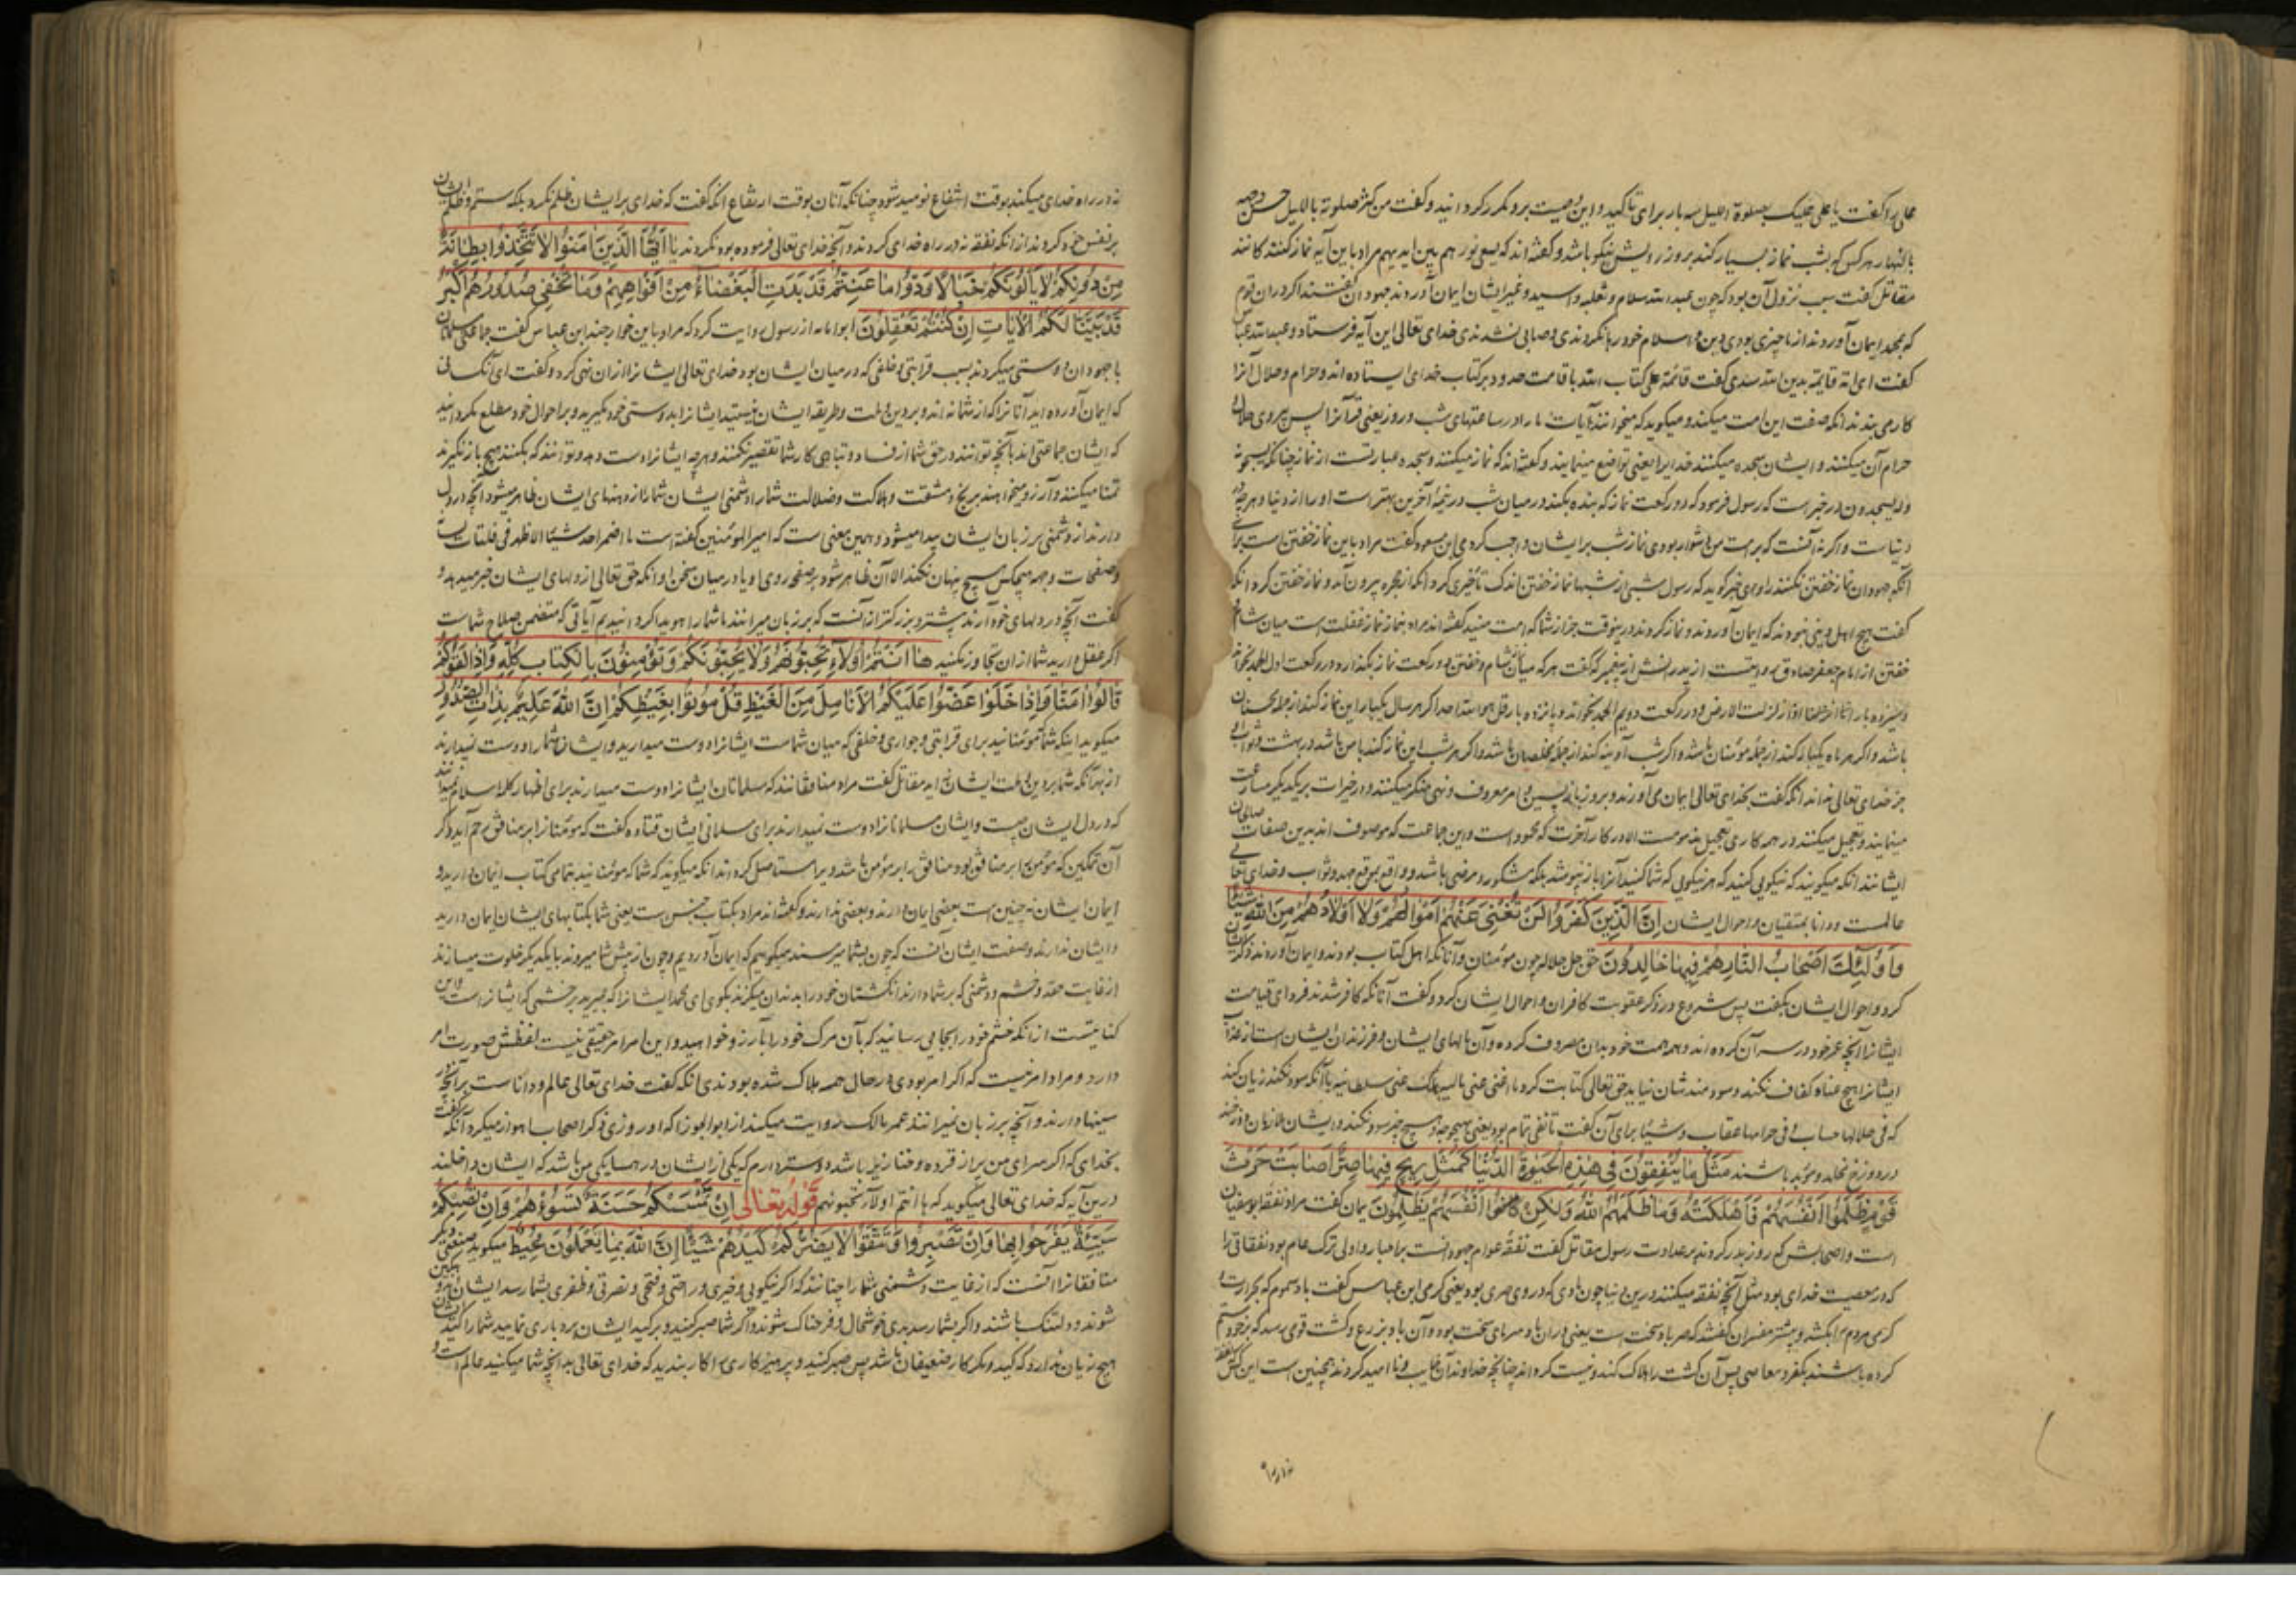 علی را گفت یا علی علیک بصلوة اللیل سه بار برای تأکید و این وصیت برو مکرر کردانید و گفت من کثر صلوته باللیل حسن وجهه
بالنهار هر کس که بشب نماز بسیار کند بروز رویش نیکو باشد و گفته‌اند که یسعی نورهم بین ایدیهم مراد باین آیه نماز کنندکانند
مقاتل گفت سبب نزول آن بود که چون عبدالله سلام و ثعلبه و اسید و غیر ایشان ایمان آوردند جهودان گفتند اگر در ان قوم
که بمحمد ایمان آوردند از ما چیزی بودی دین و اسلام خود رها نکردندی و صابی نشدندی خدای تعالی این آیه فرستاد و عبدالله عباس
گفت ای امة قایمة بدین الله سدی گفت قائمة علی کتاب الله باقامت حدود بر کتاب خدای ایستاده‌اند و حرام و حلال آنرا
کار می بندند انکه صفت این امت میکند و میکوید که میخوانند آیات ما را در ساعتهای شب و روز یعنی قرآنرا پس پیروی حلال
حرام آن میکنند و ایشان سجده میکنند خدایرا یعنی تواضع مینمایند و گفته‌اند که نماز میکنند و سجده عبارتست از نماز چنانکه یسبحونه
وله یسجدون در خبر است که رسول فرمود که دو رکعت نماز که بنده بکند در میان شب در نیمۀ آخرین بهتر است او را از دنیا و هرچه در
دنیاست و اگر نه آنست که بر امت من دشوار بودی نماز شب بر ایشان واجب کردمی ابن مسعود گفت مراد باین نماز خفتن است برای
آنکه جهودان نماز خفتن نکنند راوی خبر گوید که رسول شبی از شبها نماز خفتن اندک تأخیری کرد انکه از حجره بیرون آمد و نماز خفتن کرد انکه
گفت هیچ اهل دینی نبودند که ایمان آوردند و نماز کردند درینوقت جز از شما که امت منید گفته‌اند مراد بنماز نماز غفلت است میان شام
خفتن از امام جعفر صادق روایتست از پدرانش از پیغمبر که گفت هر که میان شام و خفتن دو رکعت نماز بگذارد در رکعت اول الحمد بخواند
و سیزده بار اذا زلزلت الارض و در رکعت دویم الحمد بخواند و پانزده بار قل هو الله احد اگر هر سال یکبار این نماز کند از جمله محسنان
باشد و اگر هر ماه یکبار کند از جمله مؤمنان باشد و اگر شب آدینه کند از جمله مخلصان باشد و اگر هر شب این نماز کند با من باشد در بهشت و ثواب او
جز خدای تعالی نداند انکه گفت بخدای تعالی ایمان می آورند و بروز بازپسین و امر معروف و نهی منکر میکنند و در خیرات بر یکدیگر مسارعت
مینمایند و تعجیل میکنند در همه کاری تعجیل مذمومست الا در کار آخرت که محمود است و این جماعت که موصوف اند بدین صفات صالحان
ایشانند انکه میکویند که نیکویی کنید که هر نیکویی که شما کنید آنرا باز نپوشد بلکه مشکور و مرضی باشد و واقع بموقع جهد و ثواب و خدای تعالی
عالمست و دانا بمتقیان و احوال ایشان اِنَّ الَّذِینَ کَفَرُوا لَنْ تُغْنِیَ عَنْهُمْ اَمْوَالُهُمْ وَلَا اَوْلَادُهُمْ مِنَ اللّٰهِ شَیْئًا
وَاُولٰئِکَ اَصْحَابُ النَّارِ هُمْ فِیهَا خَالِدُونَ حق جل جلاله چون مؤمنان و آنانکه اهل کتاب بودند و ایمان آوردند ذکر ایشان
کرد و احوال ایشان بگفت پس شروع در ذکر عقوبت کافران و احوال ایشان کرد و گفت آنانکه کافر شدند فردای قیامت
ایشانرا آنچه عمر خود در سر آن کرده‌اند و همه همت خود بدان مصروف کرده و آن مالهای ایشان و فرزندان ایشان است از عذاب
ایشانرا هیچ غناء و کفاف نکند و سودمندشان نیاید
که فی حلالها حساب و فی حرامها عقاب و شیئا برای آن گفت تا نفی تمام بود یعنی بهیچوجه و هیچ چیز سود نکند و ایشان ملازمان دوزخند
در دوزخ مخلد و مؤبد باشند مَثَلُ مَا یُنْفِقُونَ فِی هٰذِهِ الْحَیٰوةِ الدُّنْیَا کَمَثَلِ رِیحٍ فِیهَا صِرٌّ اَصَابَتْ حَرْثَ
قَوْمٍ ظَلَمُوا اَنْفُسَهُمْ فَاَهْلَکَتْهُ وَمَا ظَلَمَهُمُ اللّٰهُ وَلٰکِنْ کَانُوا اَنْفُسَهُمْ یَظْلِمُونَ یمان گفت مراد نفقه ابوسفیان
است و اصحابش که روز بدر کردند بر عداوت رسول مقاتل گفت نفقه عوام جهودانست بر احبار
که در معصیت خدای بود مثل آنچه نفقه میکنند درین دنیا چون بادی که در وی صری بود یعنی گرمی ابن عباس گفت باد سموم که بحرارت و
گرمی مردم را بکشد و بیشتر مفسران گفتند که صر باد سخت است یعنی در ان باد سرمای سخت بود و آن باد بزرع و کشت قومی رسد که بر خود ستم
کرده باشند بکفر و معاصی پس آن کشت را هلاک کند و نیست کرداند چنانچه خداوند آن خایب و ناامید گردند همچنین است
نه در راه
نه در راه خدای میکنند بوقت انتفاع نومید شود چنانکه آنان بوقت ارتفاع انکه گفت که خدای بر ایشان ظلم نکرد بلکه ستم و ظلم ایشان
بر نفس خود کردند از انکه نفقه نه در راه خدای کردند و آنچه خدای تعالی فرموده بود نکردند یَا اَیُّهَا الَّذِینَ اٰمَنُوا لَا تَتَّخِذُوا بِطَانَةً
مِنْ دُونِکُمْ لَا یَأْلُونَکُمْ خَبَالًا وَدُّوا مَا عَنِتُّمْ قَدْ بَدَتِ الْبَغْضَاءُ مِنْ اَفْوَاهِهِمْ وَمَا تُخْفِی صُدُورُهُمْ اَکْبَرُ
قَدْ بَیَّنَّا لَکُمُ الْاٰیَاتِ اِنْ کُنْتُمْ تَعْقِلُونَ ابوامامه از رسول روایت کرد که مراد باین خوارجند ابن عباس گفت جماعتی مسلمانان
با جهودان دوستی میکردند بسبب قرابتی و حلفی که در میان ایشان بود خدای تعالی ایشانرا از ان نهی کرد و گفت ای آنکسانی
که ایمان آورده‌اید آنانرا که از شما نه‌اند و بر دین و ملت و طریقه ایشان نیستید ایشانرا بدوستی خود مگیرید و بر احوال خود مطلع مکردانید
که ایشان جماعتی‌اند بآنچه توانند در حق شما از فساد و تباهی کار شما تقصیر نکنند و هرچه ایشانرا دست دهد و توانند که بکنند هیچ باز نگیرند
تمنا میکنند و آرزو میخواهند برنج و مشقت و هلاکت و ضلالت شما را دشمنی ایشان شما را از دهنهای ایشان ظاهر میشود آنچه در دل
دارند از دشمنی بر زبان ایشان پیدا میشود و همین معنی است که امیرالمؤمنین گفته است ما اضمر احد شیئا الا ظهر فی فلتات لسانه
و صفحات وجهه هیچکس هیچ پنهان نکند الا آن ظاهر شود بر صفحه روی او یا در میان سخن او انکه حق تعالی از دلهای ایشان خبر میدهد و
گفت آنچه در دلهای خود آرند بیشتر و بزرکتر از آنست که بر زبان میرانند ما شما را هویدا کردانیدیم آیاتی که متضمن صلاح شماست
اگر عقل دارید شما از ان تجاوز مکنید هَا اَنْتُمْ اُولَاءِ تُحِبُّونَهُمْ وَلَا یُحِبُّونَکُمْ وَتُؤْمِنُونَ بِالْکِتَابِ کُلِّهِ وَاِذَا لَقُوکُمْ
قَالُوا اٰمَنَّا وَاِذَا خَلَوْا عَضُّوا عَلَیْکُمُ الْاَنَامِلَ مِنَ الْغَیْظِ قُلْ مُوتُوا بِغَیْظِکُمْ اِنَّ اللّٰهَ عَلِیمٌ بِذَاتِ الصُّدُورِ
میکوید اینکه شما مؤمنانید برای قرابتی و جواری و حلفی که میان شماست ایشانرا دوست میدارید و ایشان شما را دوست نمیدارند
از بهر آنکه شما بر دین و ملت ایشان نه‌اید مقاتل گفت مراد منافقانند که مسلمانان ایشانرا دوست میدارند برای اظهار کلمه اسلام نمیدانند
که در دل ایشان چیست و ایشان مسلمانانرا دوست نمیدارند برای مسلمانی ایشان قتاده گفت که مؤمنانرا بر منافق رحم آید و گر
آن تمکین که مؤمن را بر منافق بود منافق را بر مؤمن باشد ویرا مستأصل کرداند انکه میکوید که شما که مؤمنانید بتمامی کتاب ایمان دارید و
ایمان ایشان نه چنین است بعضی ایمان دارند و بعضی ندارند و گفته‌اند مراد بکتاب جنس است یعنی شما بکتابهای ایشان ایمان دارید
و ایشان ندارند و صفت ایشان آنست که چون بشما میرسند میکویند که ایمان آوردیم و چون از پیش شما میروند با یکدیگر خلوت میسازند
از غایت حقد و خشم و دشمنی که بر شما دارند انگشتان خود را بدندان میگزند بگوی ای محمد ایشانرا که بمیرید بر خشمی که ایشانراست و این
کنایتست از انکه خشم خود را بجایی رسانید که بآن مرگ خود را بآرزو خواهید و این امر امر حقیقی نیست لفظش صورت امر
دارد و مراد امر نیست که اگر امر بودی در حال همه هلاک شده بودندی انکه گفت خدای تعالی عالم و داناست بر آنچه در
سینها دارند و آنچه بر زبان نمیرانند عمر مالک روایت میکند از ابوالجوزا که او روزی ذکر اصحاب اهوا میکرد آنکه گفت
بخدای که اگر سرای من پر از قرده و خنازیر باشد دوستر دارم که یکی از ایشان در همسایکی من باشد که ایشان داخلند
درین آیه که خدای تعالی میکوید که ها انتم اولاء تحبونهم قَوْلُهُ تَعَالٰی اِنْ تَمْسَسْکُمْ حَسَنَةٌ تَسُؤْهُمْ وَاِنْ تُصِبْکُمْ
سَیِّئَةٌ یَفْرَحُوا بِهَا وَاِنْ تَصْبِرُوا وَتَتَّقُوا لَا یَضُرُّکُمْ کَیْدُهُمْ شَیْئًا اِنَّ اللّٰهَ بِمَا یَعْمَلُونَ مُحِیطٌ میکوید صفتی دیگر
منافقانرا آنست که از غایت دشمنی شما را چنانند که اگر نیکویی و خیری و راحتی و فتحی و نصرتی و ظفری بشما رسد ایشان غمگین
شوند و دلتنگ باشند و اگر بشما رسد بدی خوشحال و فرحناک شوند و اگر شما صبر کنید و بر کید ایشان بردباری نمایید شما را کید ایشان
هیچ زیان ندارد که کید و مکر کار ضعیفان باشد پس صبر کنید و پرهیزکاری را کار بندید که خدای تعالی بدانچه شما میکنید عالم است و